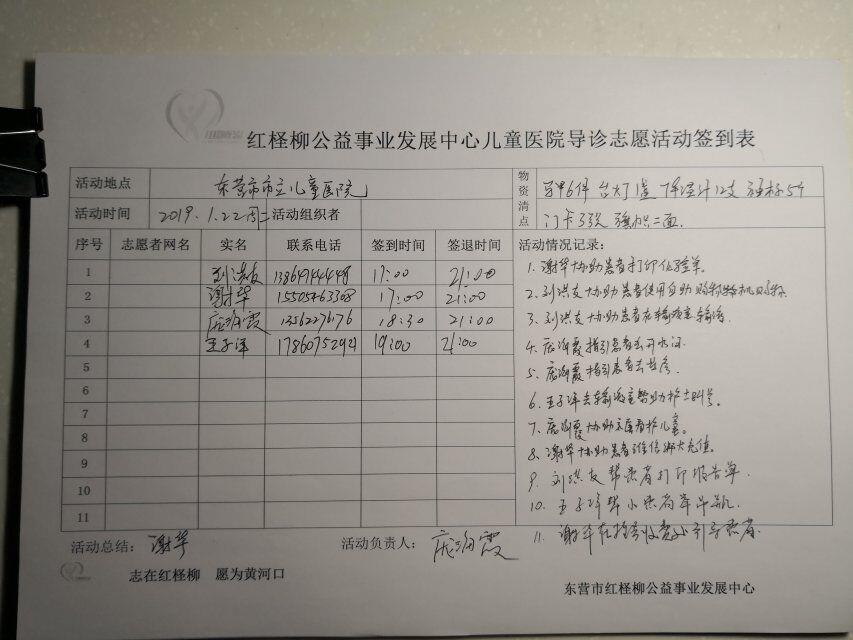 红柽柳公益事业发展中心儿童医院导诊志愿活动签到表
活动地点 东营市市立儿童医院 物资清点 马甲6件 台灯1盏 体温计12支 5个
活动时间 2019.1.22周二 活动组织者 门卡 旗帜二面
序号 志愿者网名 实名 联系电话 签到时间 签退时间 活动情况记录:
1 刘洪友 17:00 21:00
2 谢华 15505463308 17:00 21:00
3 庞海霞 18:30 21:00
4 王子洋 19:00 21:00
5
6
7
8
9
10
11
1. 谢华协助患者打印化验单。
2. 刘洪友协助患者使用自助
3. 刘洪友协助患者去输液室输液。
4. 庞海霞指引患者去开水间
5. 庞海霞指引患者去
6. 王子洋去输液室帮助护士叫号。
7. 庞海霞协助 看护儿童。
8. 谢华协助患者微信绑卡充值。
9. 刘洪友帮患者打印报告单
10. 王子洋帮小患者
11. 谢华在挂号收费处引导患者.
活动总结: 谢华 活动负责人: 庞海霞
志在红柽柳 愿为黄河口
东营市红柽柳公益事业发展中心